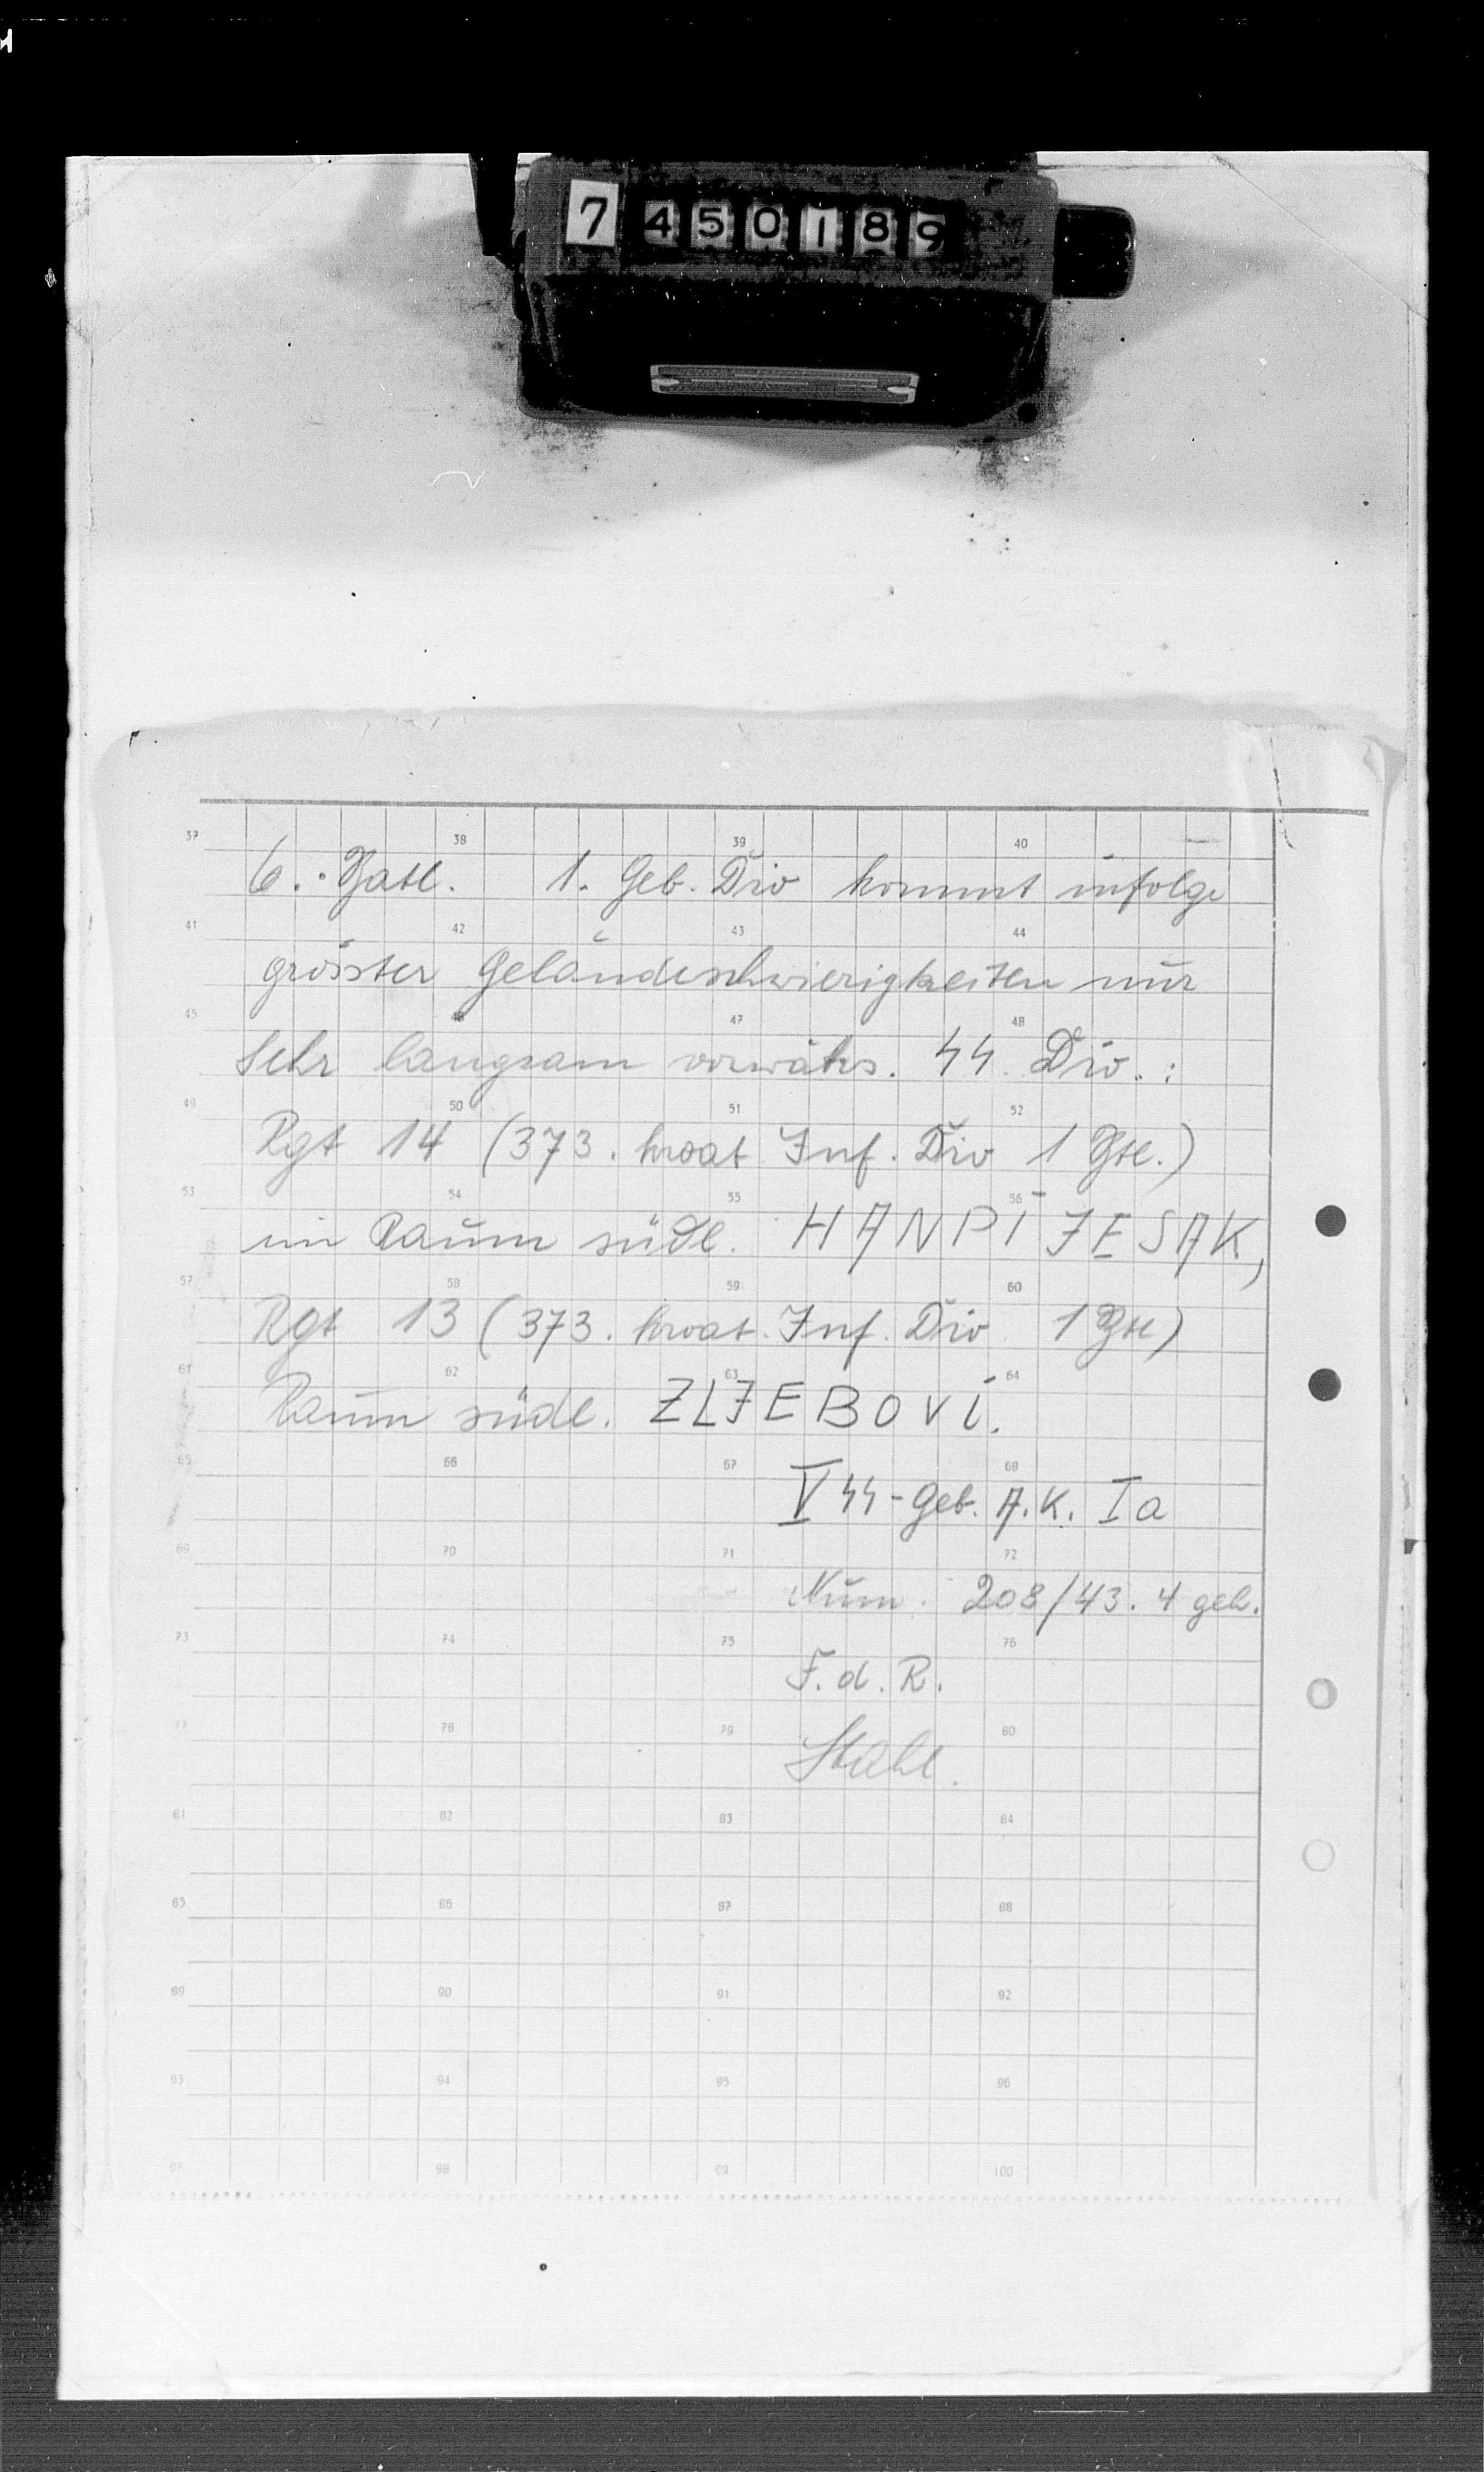 7 450189
37 38 39 40
6. Batl. 1. Geb. Div kommt infolge
41 42 43 44
grösster Geländeschwierigkeiten nur
45 46 47 48
sehr langsam vorwärts. SS Div. :
49 50 51 52
Rgt 14 (373. kroat. Inf. Div 1 Btl.)
53 54 55 56
im Raum südl. HANPIJESAK,
57 58 59 60
Rgt 13 (373. kroat. Inf. Div 1 Btl)
61 62 63 64
Raum südl. ZLJEBOVI.
65 66 67 68
V SS-Geb. A.K. Ia
69 70 71 72
Num. 208/43. 4 geh.
73 74 75 76
F.d.R.
77 78 79 80
Stahl.
81 82 83 84
85 86 87 88
89 90 91 92
93 94 95 96
97 98 99 100